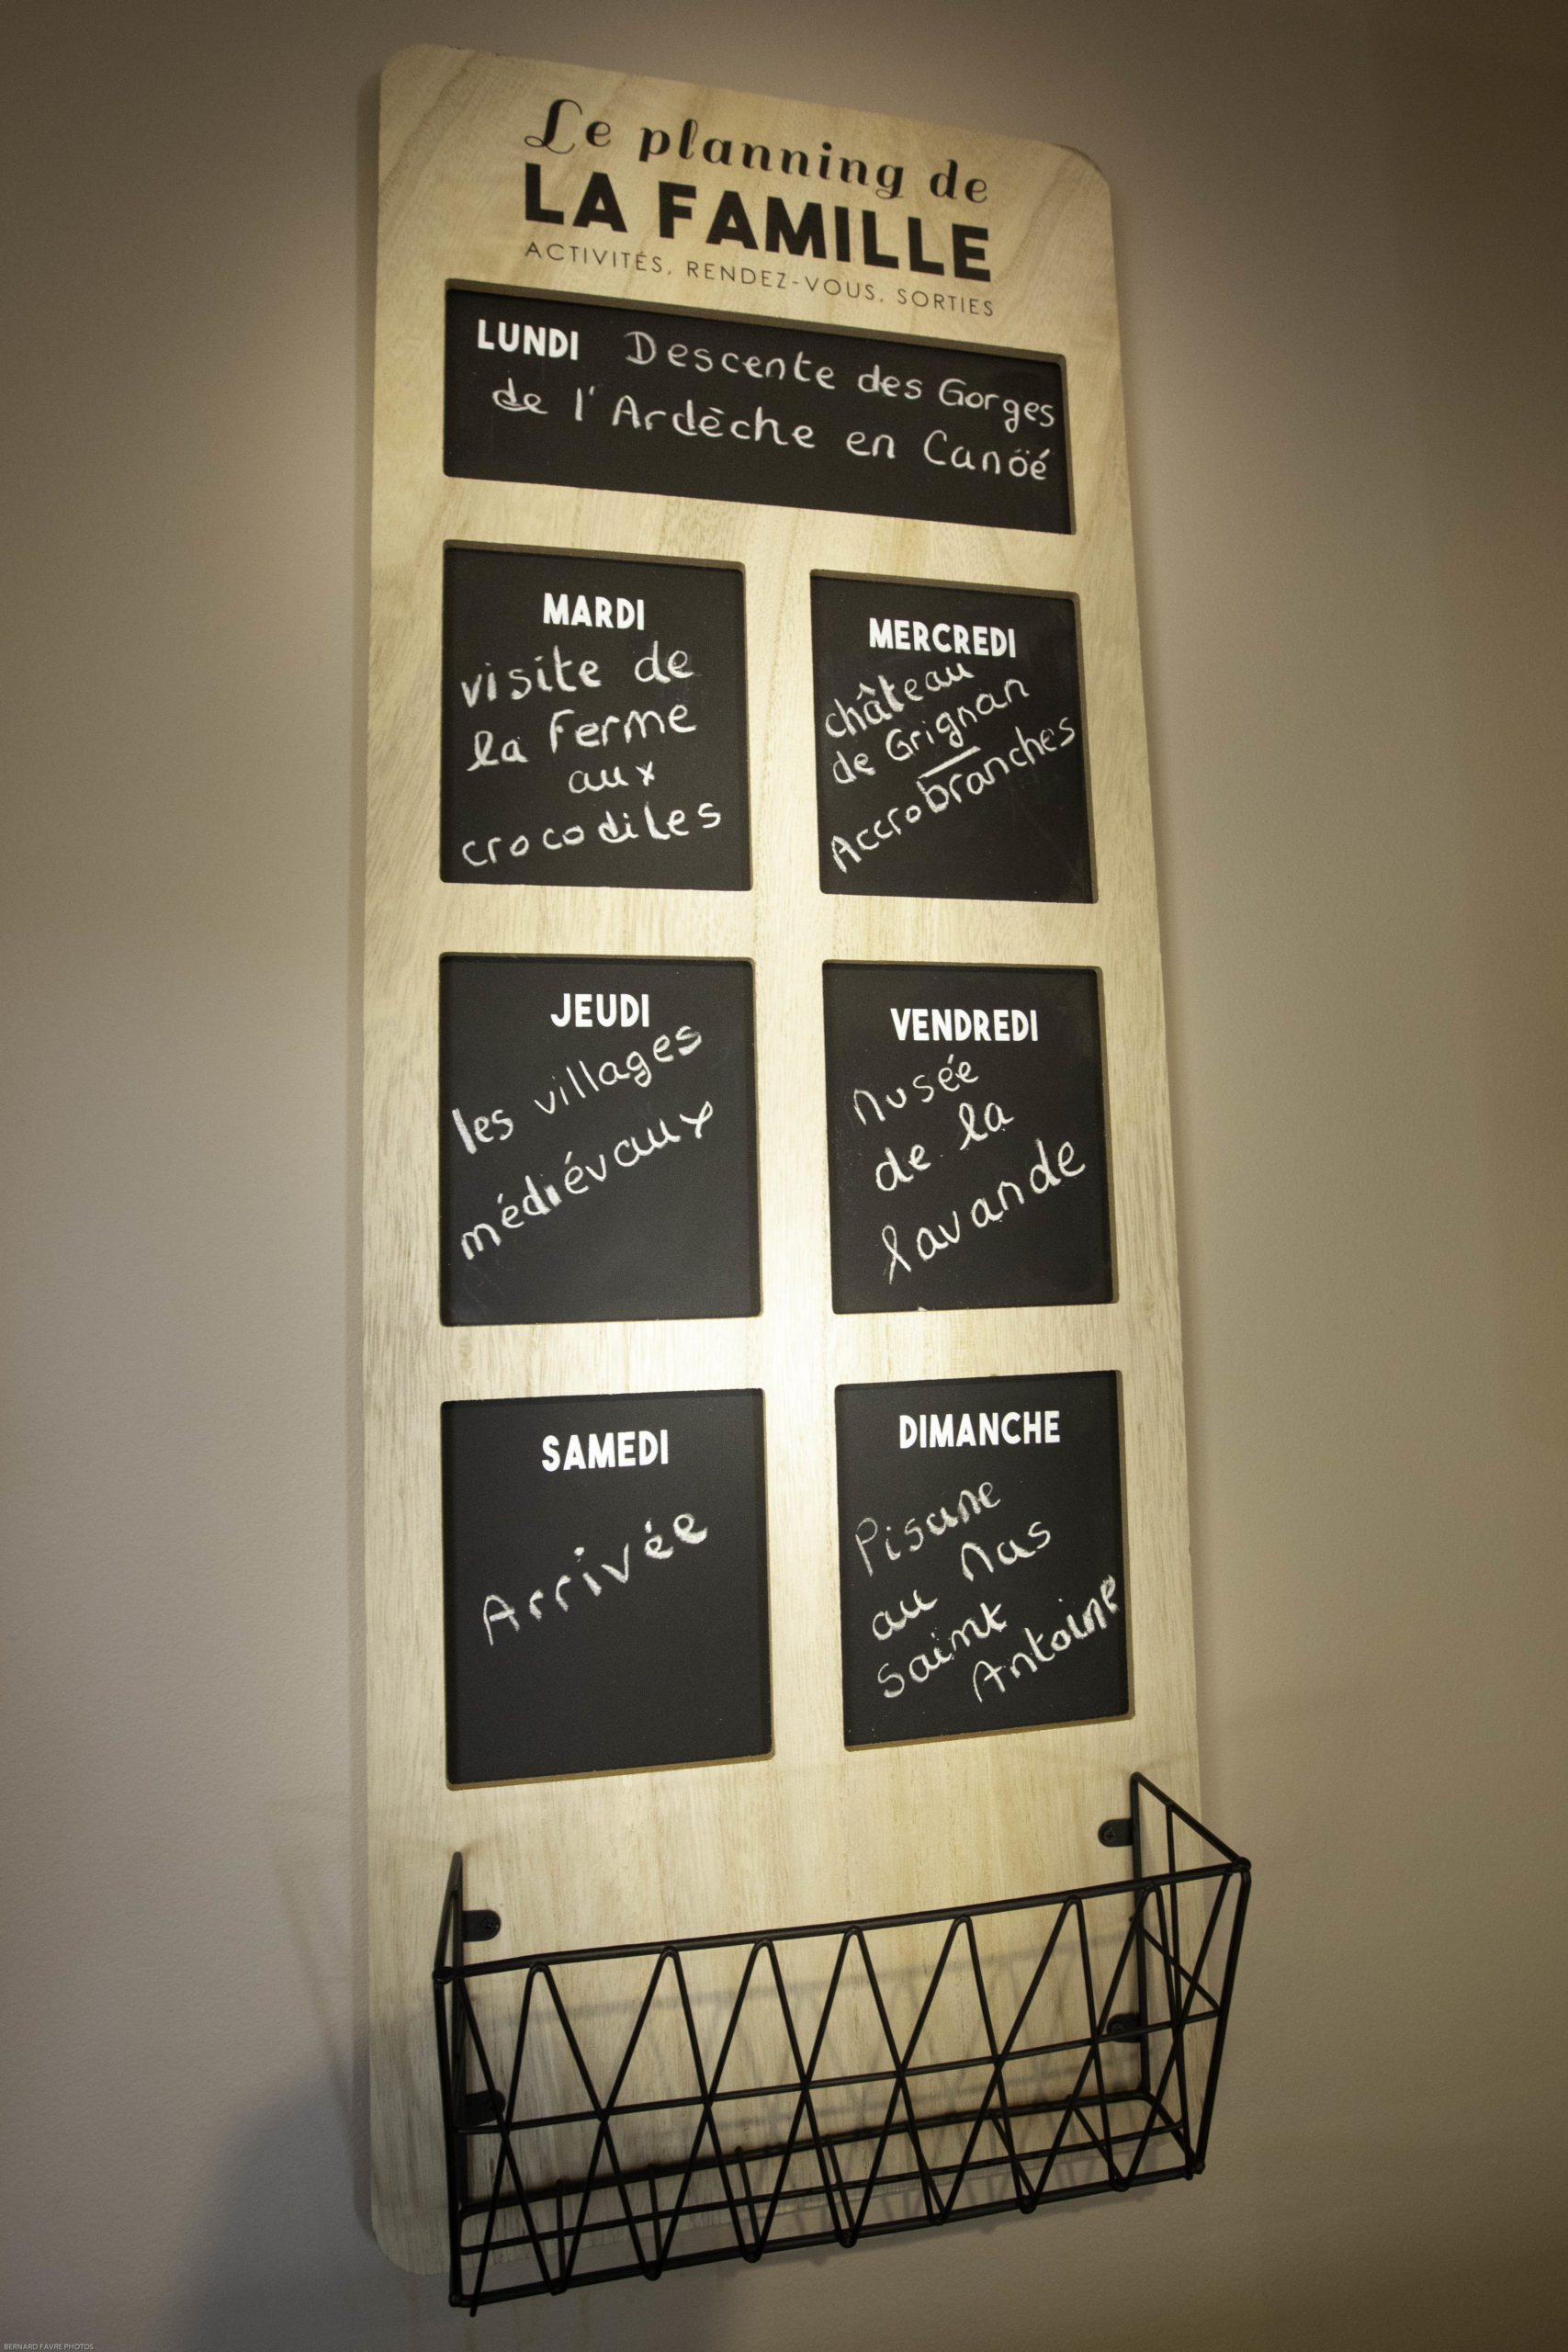 Le planning de
LA FAMILLE
ACTIVITÉS, RENDEZ-VOUS, SORTIES
LUNDI Descente des Gorges
de l'Ardèche en Canöé
MARDI
visite de
la Ferme
aux
crocodiles
MERCREDI
château
de Grignan
Accrobranches
JEUDI
les villages
médiévaux
VENDREDI
Musée
de la
lavande
SAMEDI
Arrivée
DIMANCHE
Piscine
au Mas
Saint
Antoine
BERNARD FAVRE PHOTOS